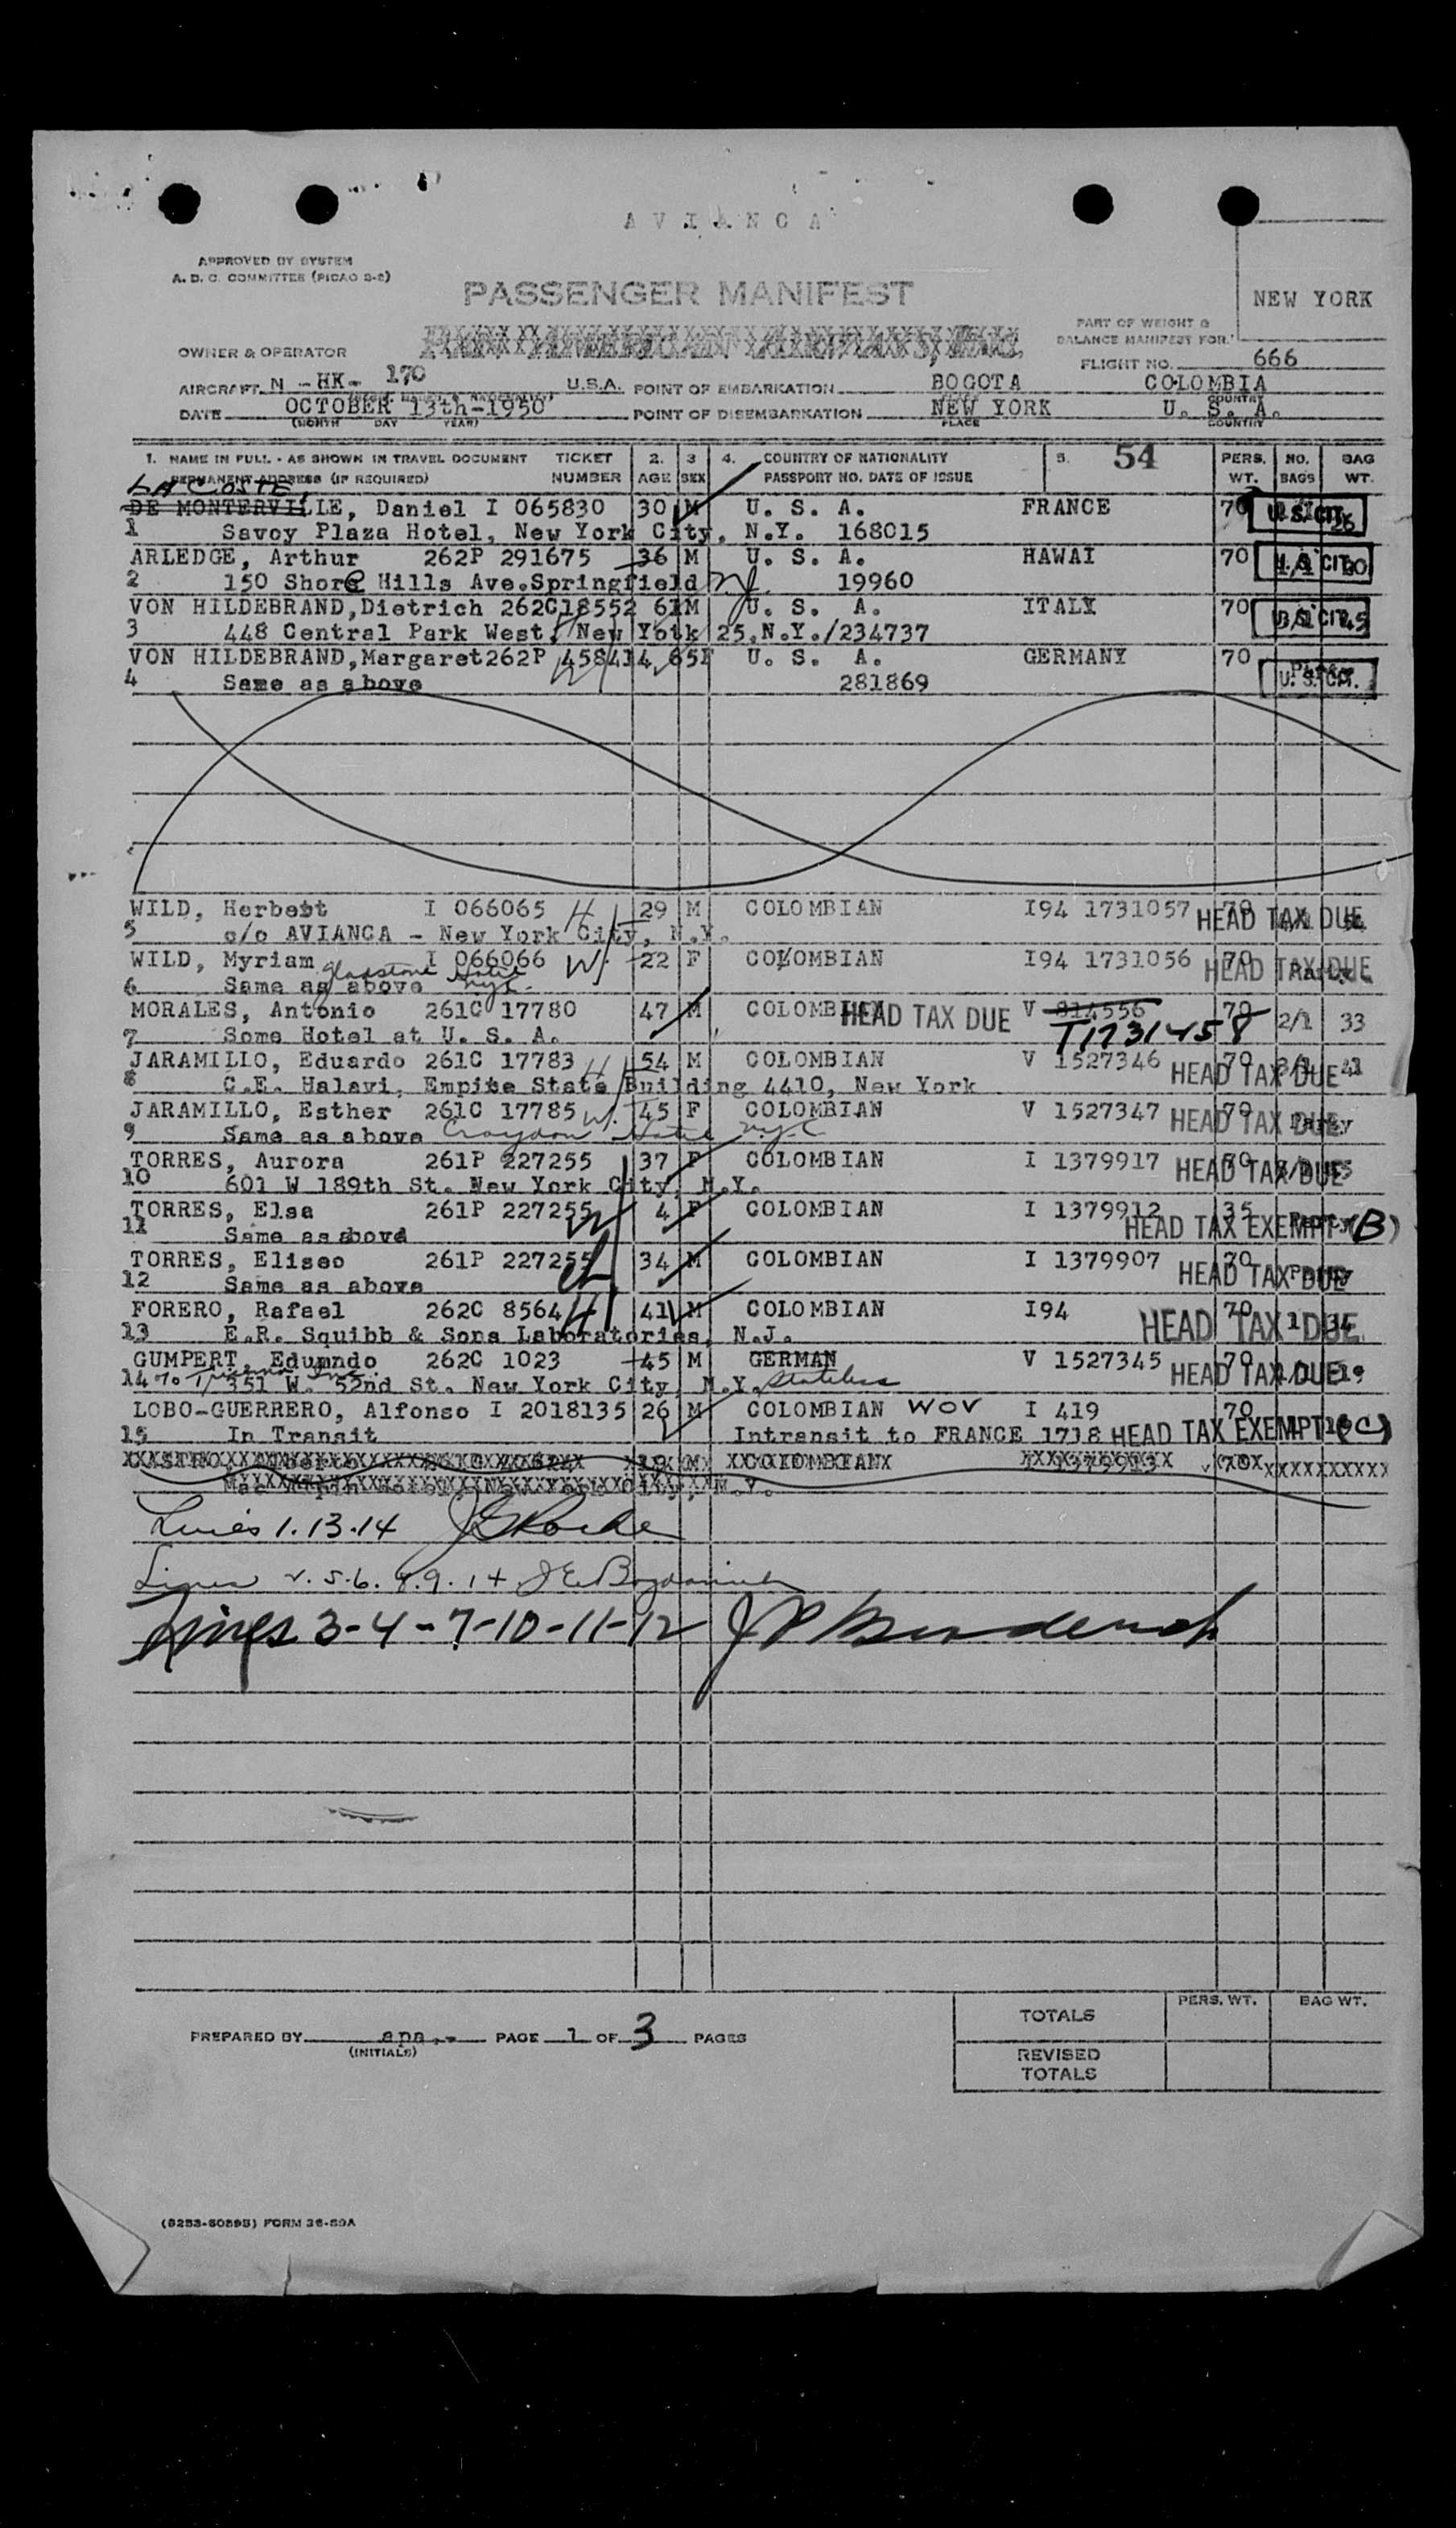 A V I A N C A
APPROVED BY SYSTEM
A. D. C. COMMITTEE (PICAO 2-2)
PASSENGER MANIFEST
NEW YORK
PART OF WEIGHT &
BALANCE MANIFEST FOR
OWNER & OPERATOR
FLIGHT NO. 666
AIRCRAFT N - HK- 170 U.S.A. POINT OF EMBARKATION BOGOTA COLOMBIA
COUNTRY
DATE OCTOBER 13th-1950 POINT OF DISEMBARKATION NEW YORK U. S. A.
(MONTH DAY YEAR) PLACE COUNTRY
1. NAME IN FULL - AS SHOWN IN TRAVEL DOCUMENT TICKET 2. 3 4. COUNTRY OF NATIONALITY 5. 54 PERS. NO. BAG
PERMANENT ADDRESS (IF REQUIRED) NUMBER AGE SEX PASSPORT NO. DATE OF ISSUE WT. BAGS WT.
LA COSTE,
DE MONTERVILLE, Daniel I 065830 30 M U. S. A. FRANCE 70 U.S. CIT.
1 Savoy Plaza Hotel, New York City, N.Y. 168015
ARLEDGE, Arthur 262P 291675 36 M U. S. A. HAWAI 70 U.S. CIT.
2 150 Shore Hills Ave.Springfield NJ. 19960
VON HILDEBRAND,Dietrich 262C18552 61M U. S. A. ITALY 70 U.S. CIT.
3 448 Central Park West, New Yotk 25.N.Y./234737
VON HILDEBRAND,Margaret262P 458414 65F U. S. A. GERMANY 70
4 Same as above 281869 U. S. CIT.
WILD, Herbett I 066065 H 29 M COLOMBIAN I94 1731057 70 HEAD TAX DUE
5 c/o AVIANCA - New York City, N.Y.
WILD, Myriam I 066066 W. 22 F COLOMBIAN I94 1731056 70 HEAD TAX DUE
gladstone Hotel
6 Same as above NYC.
MORALES, Antonio 261C 17780 47 M COLOMBIAN HEAD TAX DUE V 814556 70 2/1 33
7 Some Hotel at U. S. A. T1731458
JARAMILLO, Eduardo 261C 17783 H 54 M COLOMBIAN V 1527346 70 HEAD TAX DUE
8 C.E. Halavi, Empite State Building 4410, New York
JARAMILLO, Esther 261C 17785 W. 45 F COLOMBIAN V 1527347 70 HEAD TAX DUE
9 Same as above Croydon Hotel N.Y.C
TORRES, Aurora 261P 227255 37 F COLOMBIAN I 1379917 70 HEAD TAX DUE
10 601 W 189th St. New York City, N.Y.
TORRES, Elsa 261P 227255 4 F COLOMBIAN I 1379912 35 HEAD TAX EXEMPT (B)
11 Same as abovd
TORRES, Eliseo 261P 227255 34 M COLOMBIAN I 1379907 70 HEAD TAX DUE
12 Same as above
FORERO, Rafael 262C 8564 H 41 M COLOMBIAN I94 70 HEAD TAX DUE
13 E.R. Squibb & Sons Laboratories, N.J.
GUMPERT, Edumndo 262C 1023 45 M GERMAN V 1527345 70 HEAD TAX DUE
14 351 W. 52nd St. New York City, N.Y. Stateless
LOBO-GUERRERO, Alfonso I 2018135 26 M COLOMBIAN WOV I 419 70
15 In Transit Intransit to FRANCE 1718 HEAD TAX EXEMPT (C)
Lines 1.13.14
5.6. 8.9. 14
Lines 3-4-7-10-11-12
PREPARED BY apa.- PAGE 1 OF 3 PAGES
(INITIALS)
TOTALS PERS. WT. BAG WT.
REVISED
TOTALS
(8253-5059B) FORM 36-59A